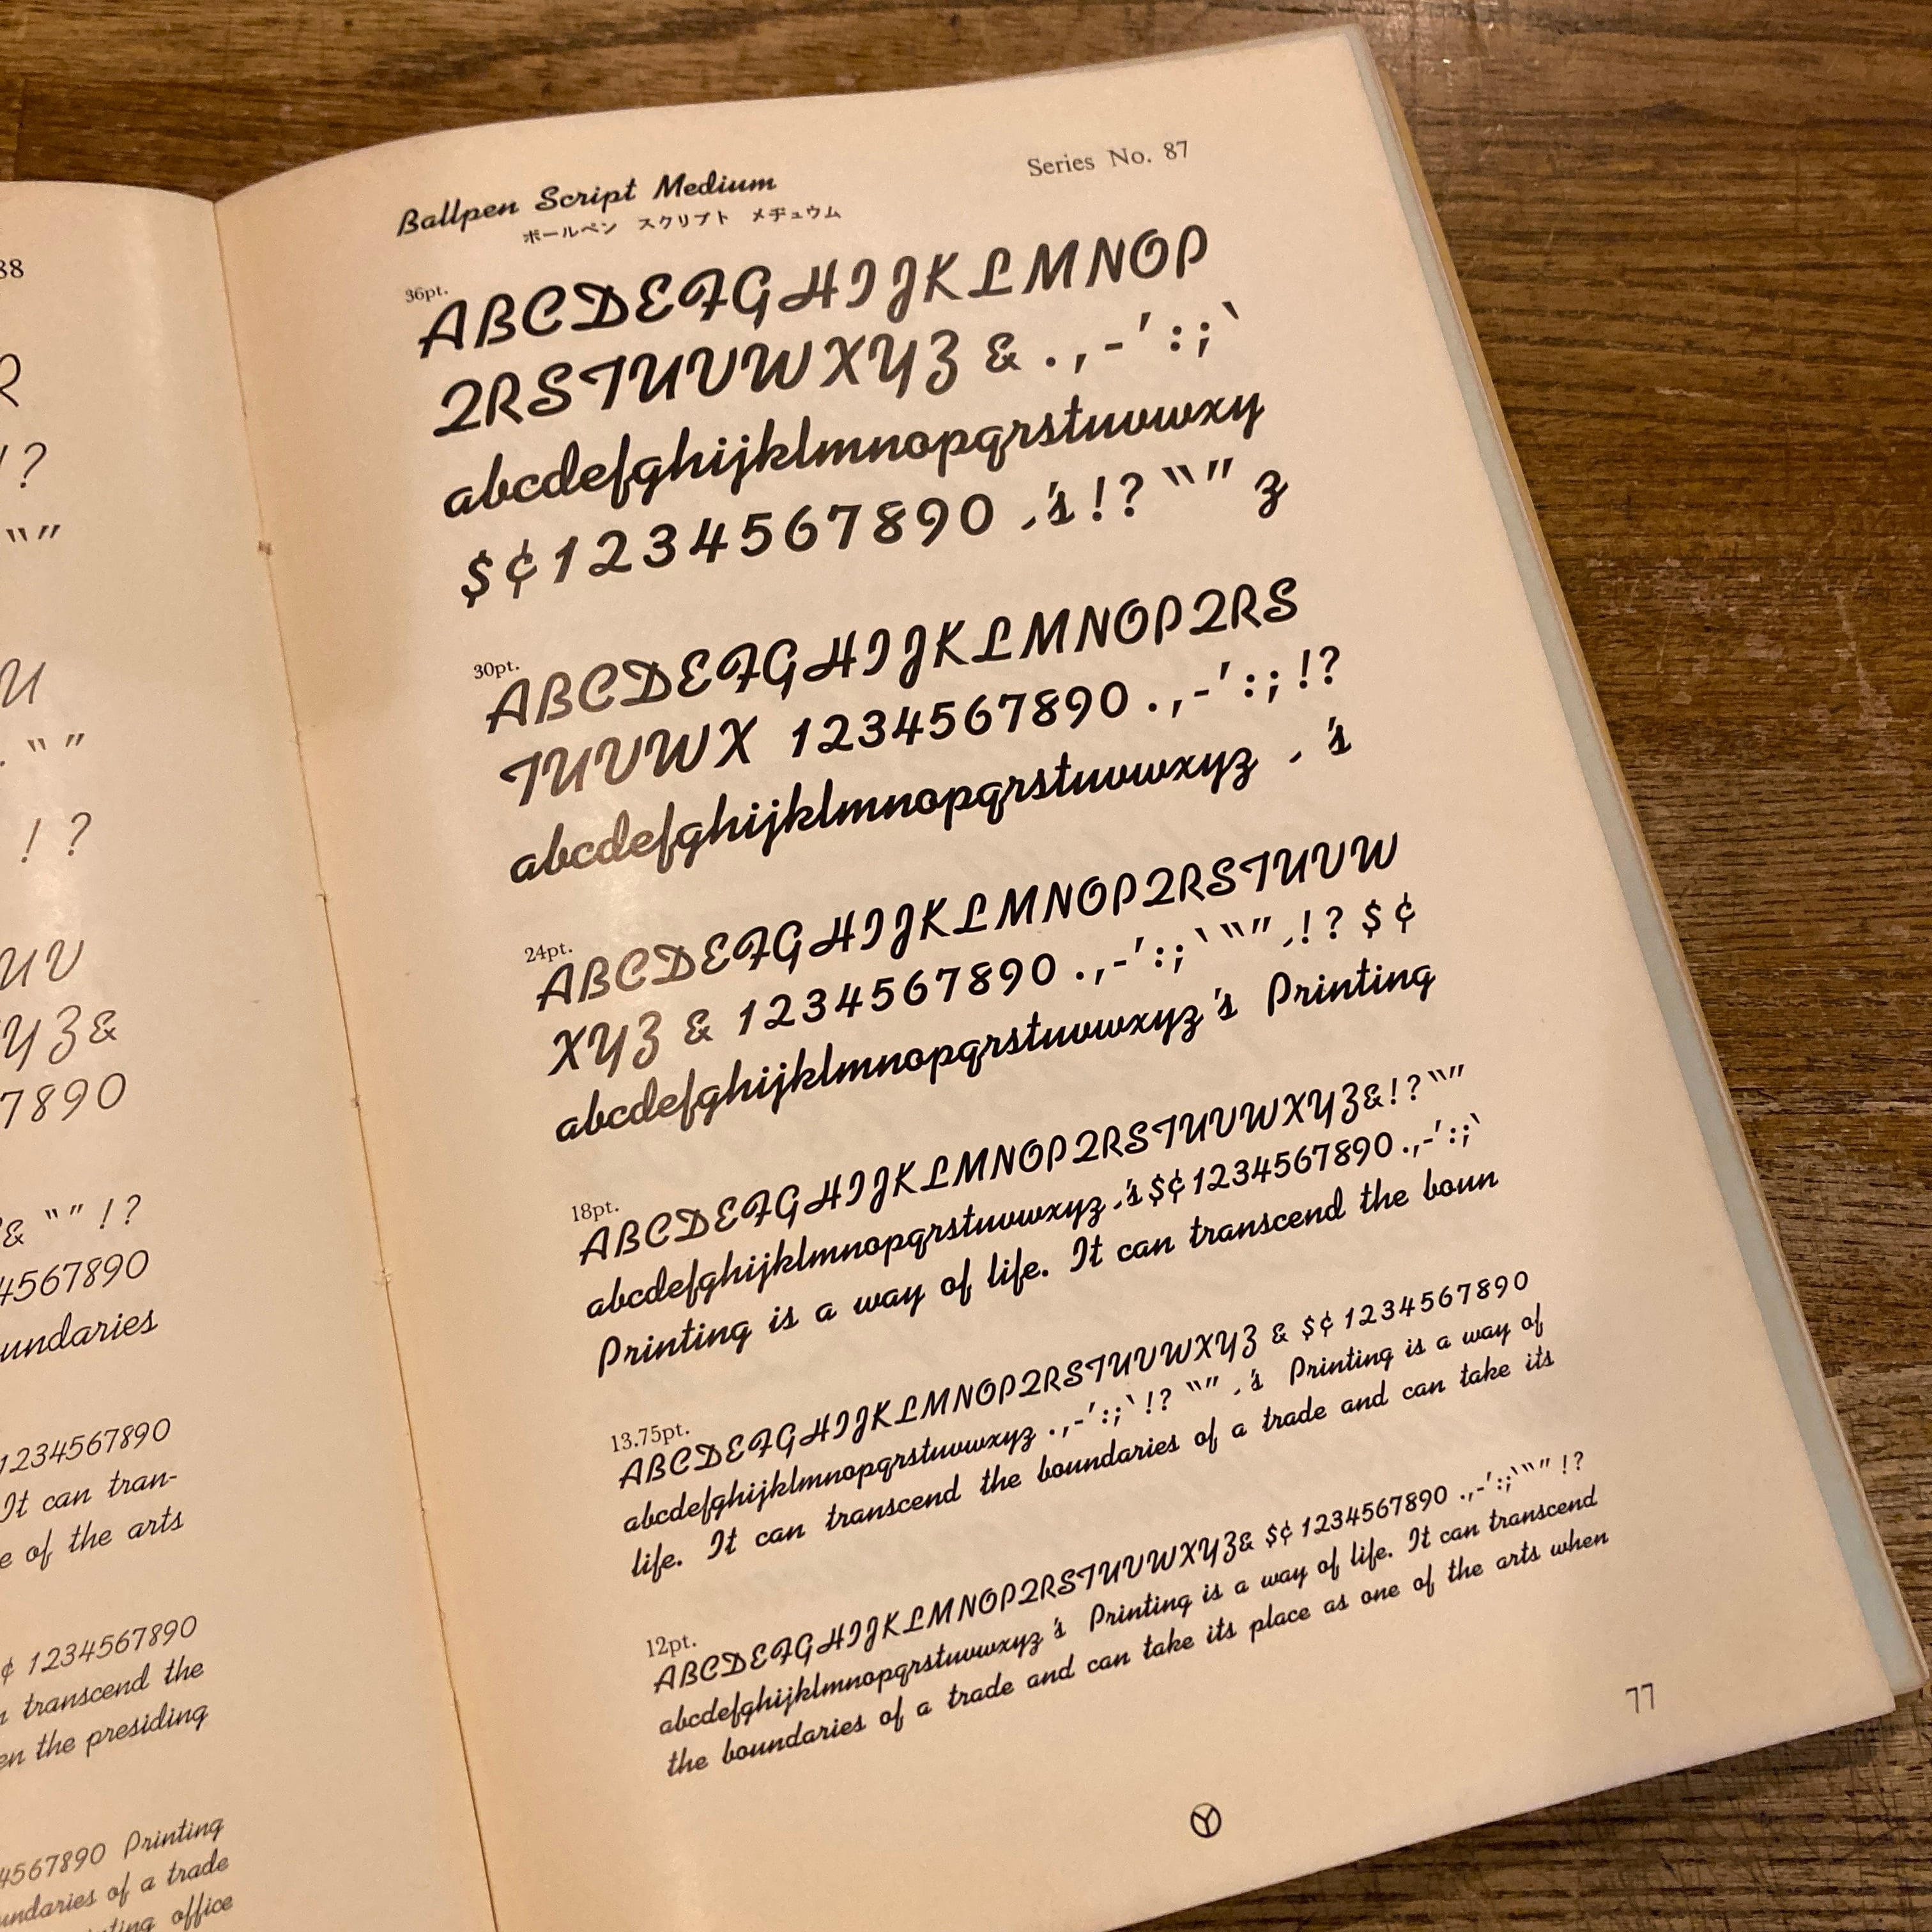 88
R
!?
“”
U
. “”
! ?
UV
YZ&
7890
& “” !?
4567890
undaries
1234567890
It can tran-
e of the arts
¢ 1234567890
transcend the
en the presiding
4567890 Printing
undaries of a trade
office
Ballpen Script Medium
Series No. 87
ボールペン スクリプト メヂュウム
36pt.
ABCDEFGHIJKLMNOP
QRSTUVWXYZ & .,-':;‵
abcdefghijklmnopqrstuvwxy
$¢1234567890 ͵'s!? “” z
30pt.
ABCDEFGHIJKLMNOPQRS
TUVWX 1234567890 .,-':;!?
abcdefghijklmnopqrstuvwxyz ͵ 's
24pt.
ABCDEFGHIJKLMNOPQRSTUVW
XYZ & 1234567890 .,-':;‵“” ͵!? $¢
abcdefghijklmnopqrstuvwxyz 's Printing
18pt.
ABCDEFGHIJKLMNOPQRSTUVWXYZ&!?“”
abcdefghijklmnopqrstuvwxyz ͵'s$¢1234567890 .,-':;‵
Printing is a way of life. It can transcend the boun
13.75pt.
ABCDEFGHIJKLMNOPQRSTUVWXYZ & $¢ 1234567890
abcdefghijklmnopqrstuvwxyz .,-':;‵!? “” ͵'s Printing is a way of
life. It can transcend the boundaries of a trade and can take its
12pt.
ABCDEFGHIJKLMNOPQRSTUVWXYZ& $¢ 1234567890 .,-':;‵“” !?
abcdefghijklmnopqrstuvwxyz 's Printing is a way of life. It can transcend
the boundaries of a trade and can take its place as one of the arts when
77